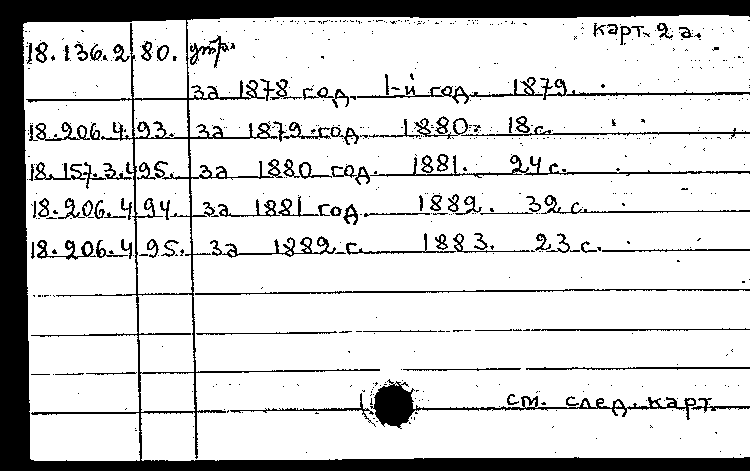 карт. 2 а.
18.136.2 80. утр.
за 1878 год. 1-й год. 1879.
18.206.4. 93. за 1879 год. 1880. 18 с.
18.157.3. 495. за 1880 год. 1881. 24 с.
18.206.4 94. за 1881 год. 1882. 32 с.
18.206.4 95. за 1882 г. 1883. 23 с.
см. след. карт.